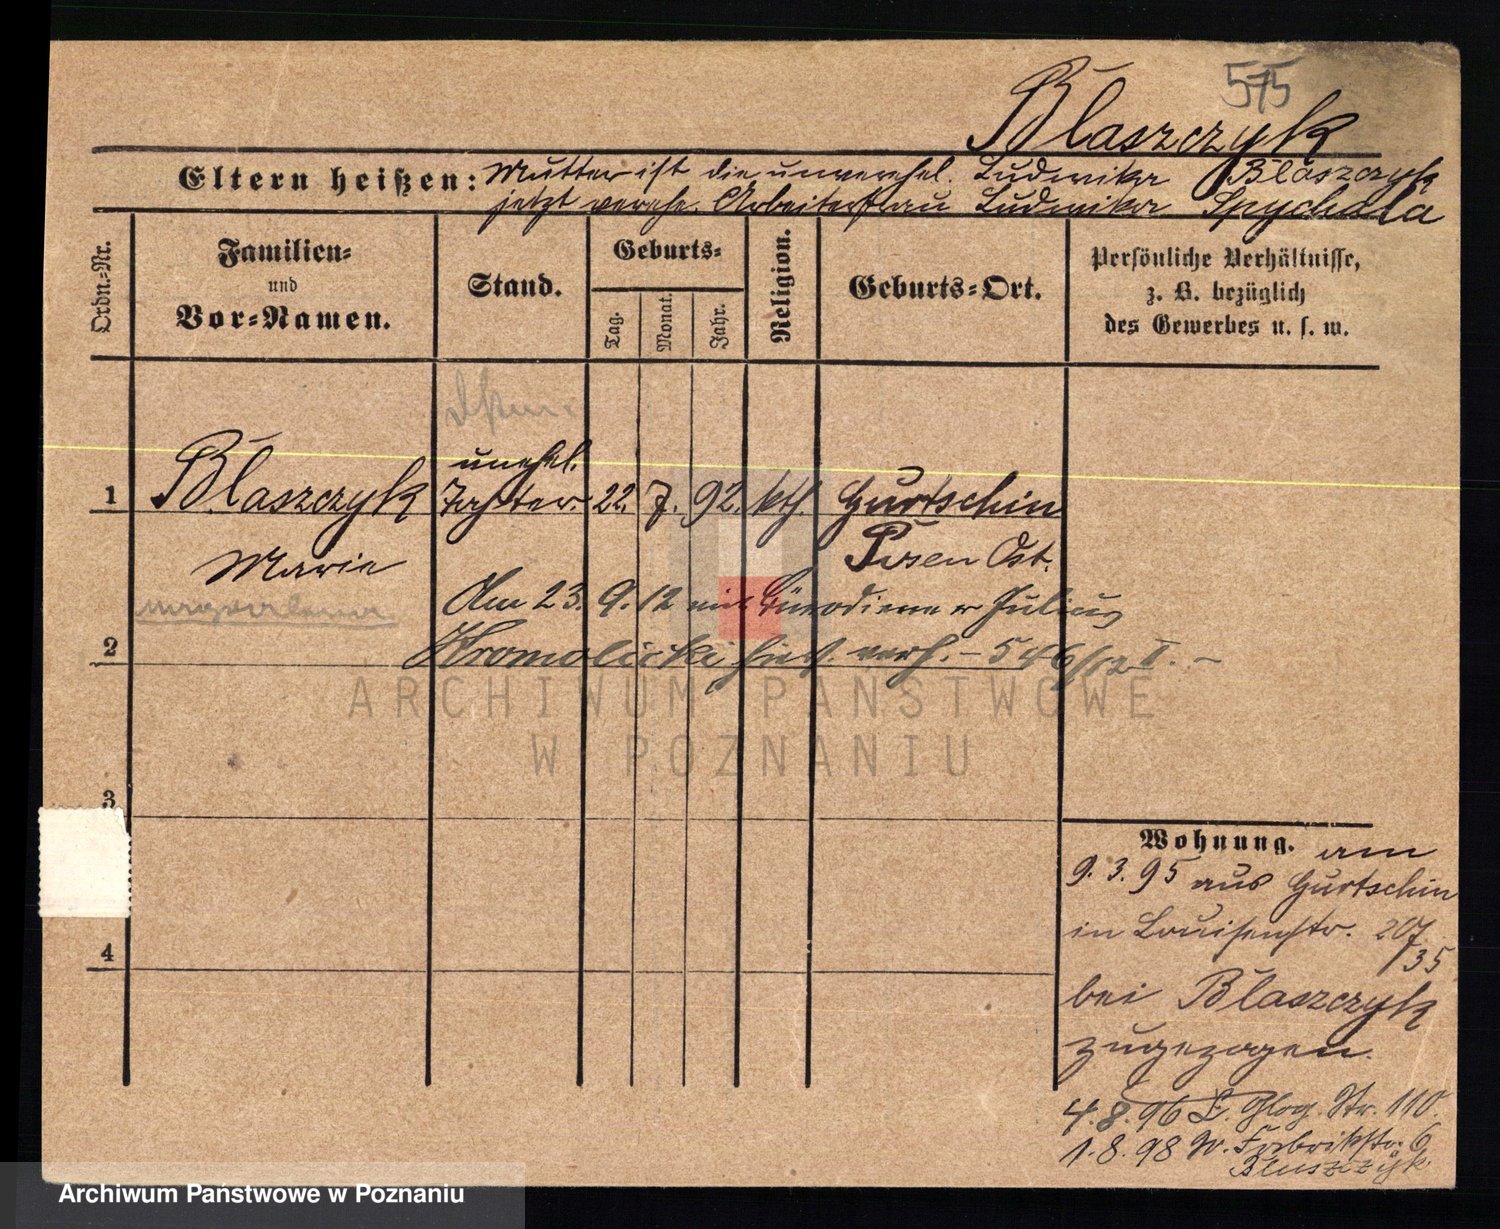 575
Błaszczyk
Eltern heißen: Mutter ist die unverehel. Ludwika Błaszczyk
jetzt vereh. Arbeiterfrau Ludwika Spychala
Ordn.-Nr.
Familien-
und
Vor-Namen.
Stand.
Geburts-
Tag.
Monat.
Jahr.
Religion.
Geburts-Ort.
Persönliche Verhältnisse,
z. B. bezüglich
des Gewerbes u. s. w.
unehel.
1 Błaszczyk Tochter. 22. 7. 92. kth. Gurtschin
Marie Posen Ost.
Magdalena
Am 23. 9. 12 mit Bürodiener Julius
2 Kromolicki hies. verh. - 546/12 I. -
ARCHIWUM PAŃSTWOWE
W POZNANIU
3
4
Wohnung. am
9. 3. 95 aus Gurtschin
in Louisenstr. 207/35
bei Błaszczyk
zugezogen.
4. 8. 96 L. Glog. Str. 110.
1. 8. 98 W. Fabrikstr. 6
Błaszczyk.
Archiwum Państwowe w Poznaniu